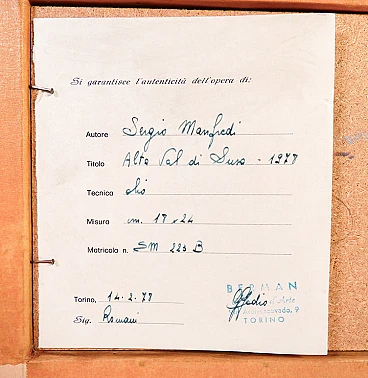 Si garantisce l'autenticità dell'opera di:
Autore Sergio Manfredi
Titolo Alta Val di Susa - 1978
Tecnica olio
Misura cm. 18 x 24
Matricola n. SM 223 B
Torino, 14-2-78
Sig. Romani
BERMAN
d'Arte
9
TORINO